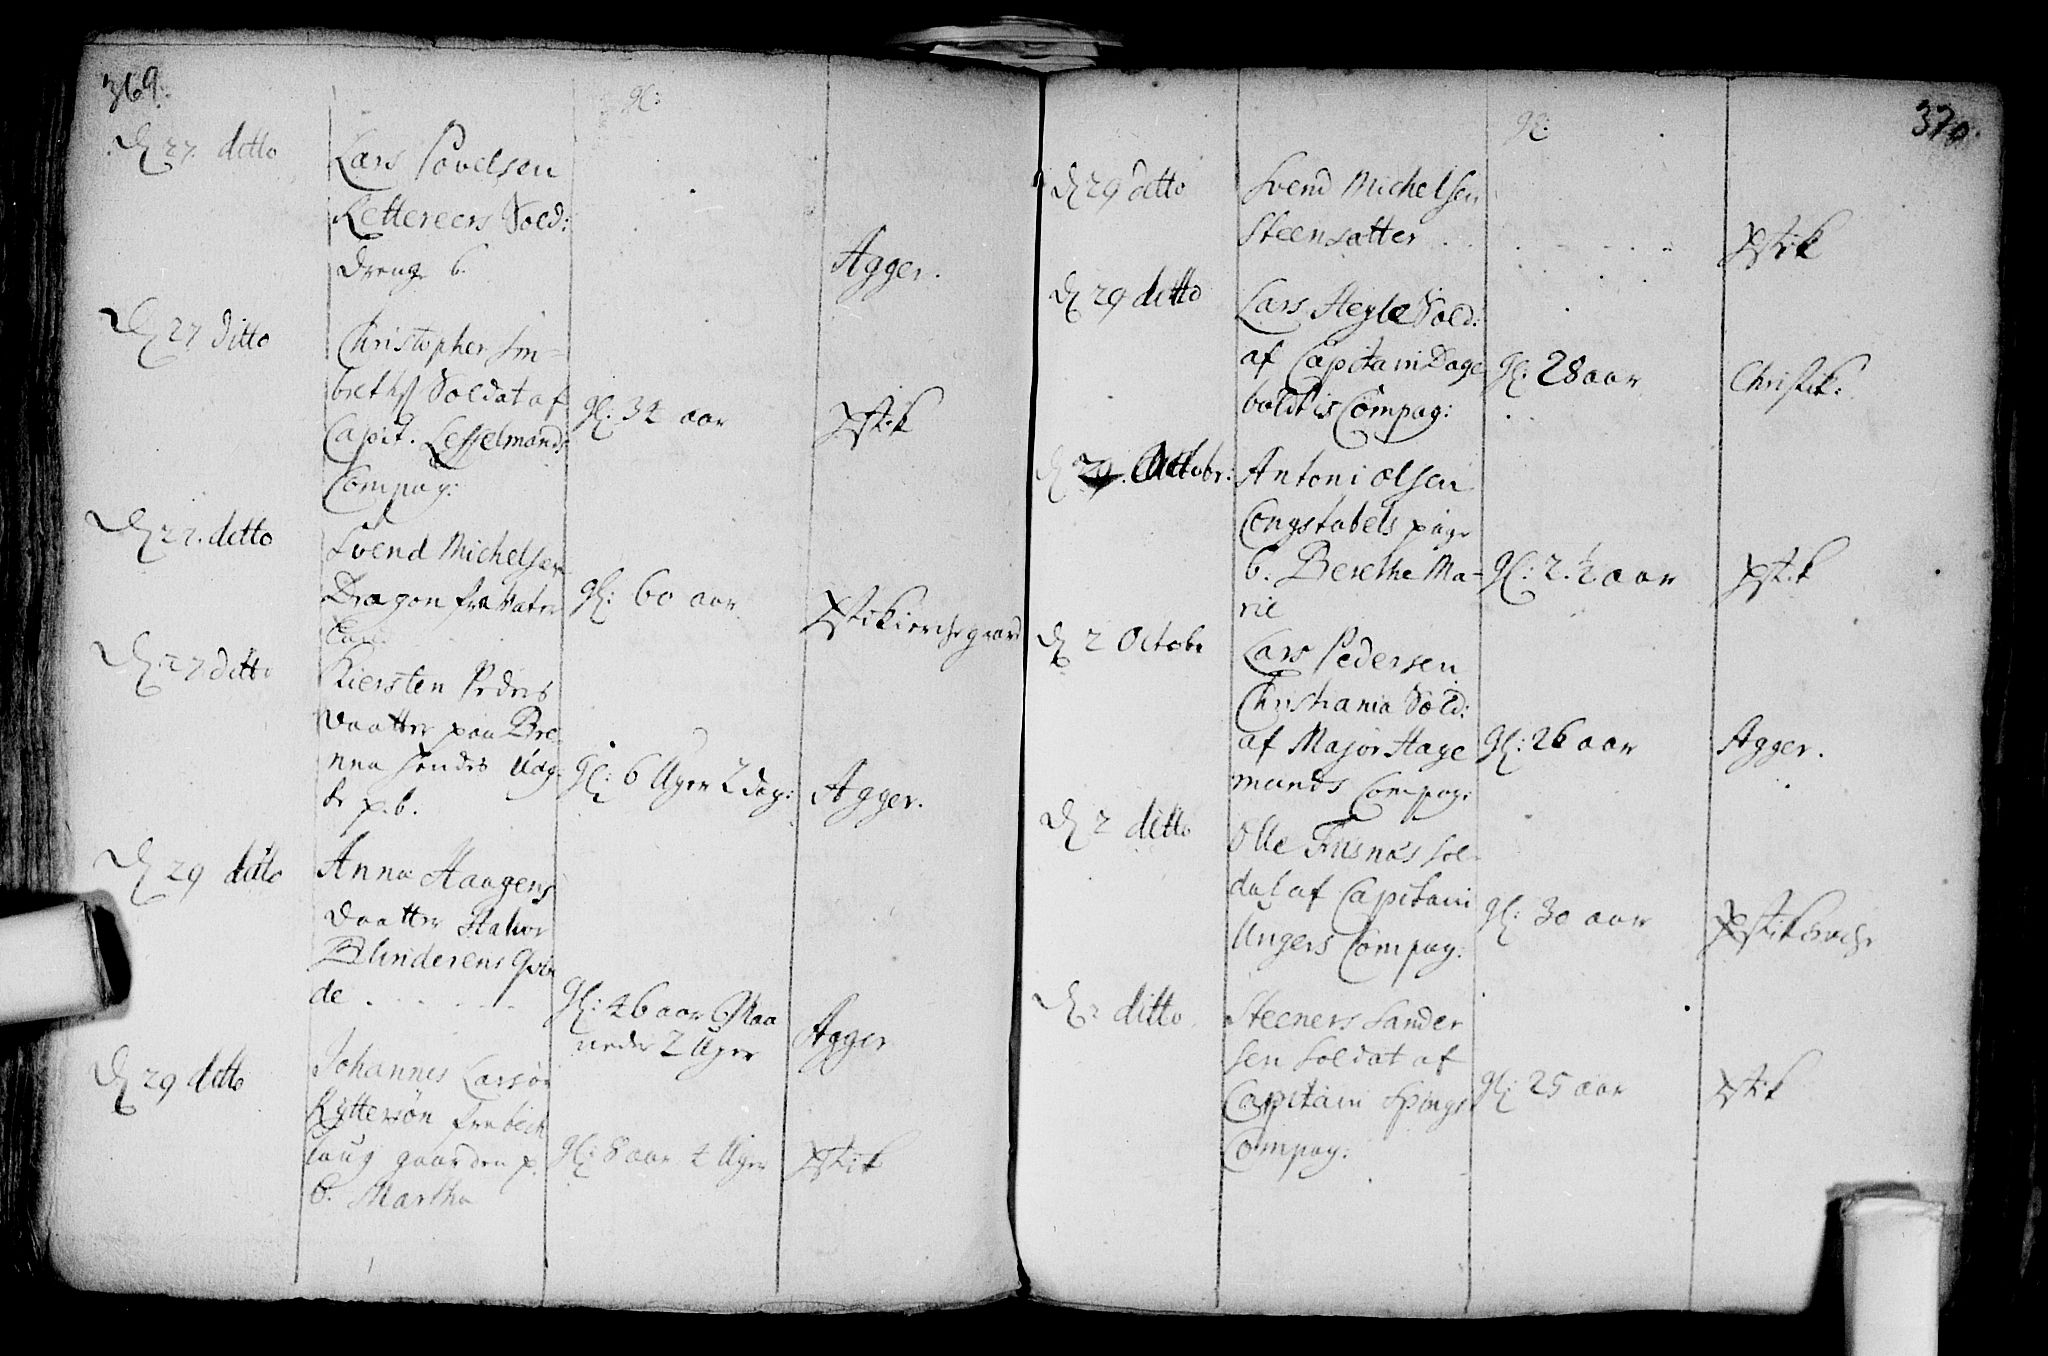 369.
gl:
D 27. ditto
Lars Povelsen
Rettereers Sold:
Dreng b.
Agger.
D 27 ditto
Christopher Im=
breths Soldat af
Capit. Lesselmands
Compag:
gl: 34 aar
Xstik
D 27. ditto
Svend Michelsen
Dragon fra
gl: 60 aar
Xstikierchegaard
D 27 ditto
Kiersten Peders
Daatter paa Bre
nna hendes
p. b.
gl: 6 Uger 2 dag:
Agger.
D 29 ditto
Anna Haagens
Daatter
Blinderens
de
gl: 46 aar Maa
neder 2 Uger
Agger
D 29 ditto
Johannes Larsøn
Rÿttersøn fra bech
laug gaarden p.
b. Martha
gl: 8 aar 4 Uger
Xstik
370.
gl:
D 29 ditto
Svend Michelsen
Steensatter
Xstik
D 29 ditto
Lars Heyle Sold:
af Capitain Dage
boldtis Compag:
gl: 28 aar
Christik:
D 29. Octobr:
Antoni Olsen
Congstabels pige
b. Berethe Ma-
rie
gl: 2. 1/2 aar
Xstik
D 2 Octobr
Lars Pedersen
Christiania Sold:
af Major Hage
mands Compag:
gl: 26 aar
Agger.
D 2 ditto
Olle Fusnes Sol-
dat af Capitain
Ungers Compag:
gl: 30 aar
D 2 ditto
Steeners Sander
sen Soldat af
Capitain Spings
Compag:
gl: 25 aar
Xstik